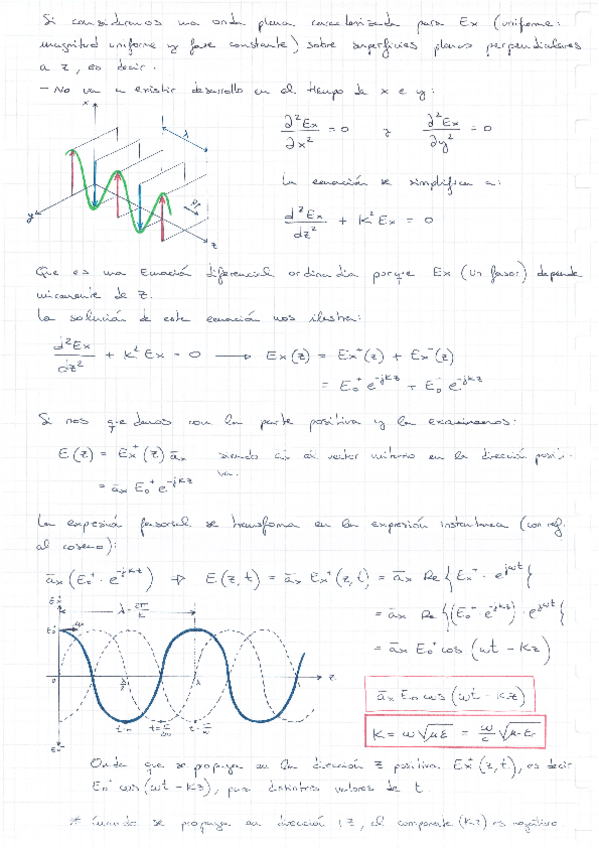 Si consideramos una onda plana caracterizada para Ex (uniforme:
magnitud uniforme y fase constante) sobre superficies planas perpendiculares
a z, es decir.
- No va a existir desarrollo en el tiempo de x e y:
x
λ
y
z
∂²Ex/∂x² = 0 y ∂²Ex/∂y² = 0
La ecuación se simplifica a:
d²Ex/dz² + K² Ex = 0
Que es una Ecuación diferencial ordinaria porque Ex (un fasor) depende
unicamente de z.
La solución de este ecuación nos ilustra:
d²Ex/dz² + K² Ex = 0 → Ex(z) = Ex⁺(z) + Ex⁻(z)
= E₀⁺ e^-jkz + E₀⁻ e^-jkz
Si nos quedamos con la parte positiva y la examinamos:
E(z) = Ex⁺(z) āx siendo āx el vector unitario en la dirección positi-
va.
= āx E₀⁺ e^-jkz
La expresión fasorial se transforma en la expresión instantanea (con ref.
al coseno):
āx (E₀⁺ · e^-jkz) ⇒ E(z,t) = āx Ex⁺(z,t) = āx Re{Ex⁺ · e^jωt}
= āx Re{(E₀⁺ e^-jkz) · e^jωt}
= āx E₀⁺ cos(ωt - Kz)
Ex⁺
λ = 2π/K
E₀⁺
0
λ/2
λ
z
āx E₀ cos(ωt - Kz)
K = ω√με = ω/c √μrεr
Onda que se propaga en la dirección z positiva. Ex⁺(z,t), es decir
E₀⁺ cos(ωt - Kz), para distintos valores de t.
* Cuando se propaga en dirección +z, el componente (Kz) es negativo